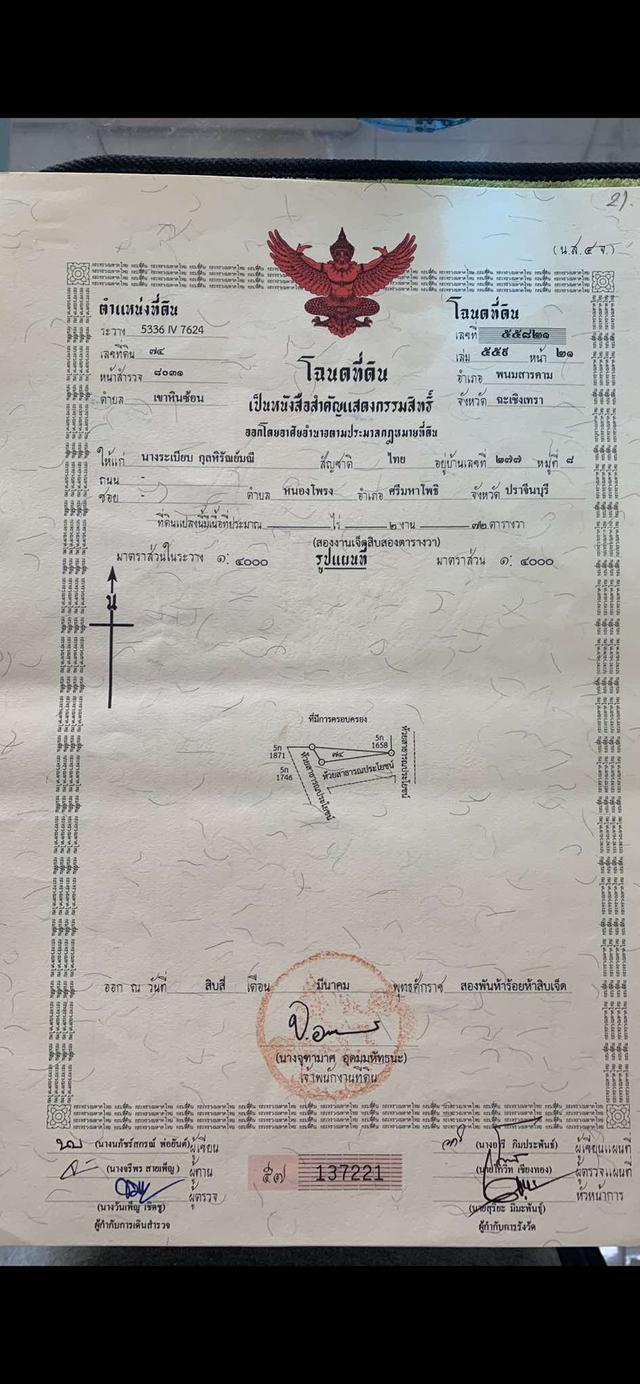 21.
(น.ส.๔ จ.)
ตำแหน่งที่ดิน
ระวาง 5336 IV 7624
เลขที่ดิน ๗๔
หน้าสำรวจ ๘๐๓๑
ตำบล เขาหินซ้อน
โฉนดที่ดิน
เลขที่ ๕๕๘๒๑
เล่ม ๕๕๙ หน้า ๒๑
อำเภอ พนมสารคาม
จังหวัด ฉะเชิงเทรา
โฉนดที่ดิน
เป็นหนังสือสำคัญแสดงกรรมสิทธิ์
ออกโดยอาศัยอำนาจตามประมวลกฎหมายที่ดิน
ให้แก่ นางระเบียบ กุลหิรัณย์มณี สัญชาติ ไทย อยู่บ้านเลขที่ ๒๗๗ หมู่ที่ ๘
ถนน -
ซอย - ตำบล หนองโพรง อำเภอ ศรีมหาโพธิ จังหวัด ปราจีนบุรี
ที่ดินแปลงนี้มีเนื้อที่ประมาณ - ไร่ ๒ งาน ๗๒ ตารางวา
(สองงานเจ็ดสิบสองตารางวา)
มาตราส่วนในระวาง ๑: ๔๐๐๐ รูปแผนที่ มาตราส่วน ๑: ๔๐๐๐
น
ที่มีการครอบครอง
5ก
1871
5ก
1658
๗๔
5ก
1746
ห้วยสาธารณประโยชน์
ห้วยสาธารณประโยชน์
ห้วยสาธารณประโยชน์
ออก ณ วันที่ สิบสี่ เดือน มีนาคม พุทธศักราช สองพันห้าร้อยห้าสิบเจ็ด
(นางจุฑามาศ อุดมมหัทธนะ)
เจ้าพนักงานที่ดิน
(นางนภัชร์สกรณ์ พ่อยันต์) ผู้เขียน
(นางจรีพร สายเพ็ญ) ผู้ทาน
ผู้ตรวจ
(นางวันเพ็ญ เชิดชู)
ผู้กำกับการเดินสำรวจ
๕๗ 137221
(นางอารี กิมประพันธ์) ผู้เขียนแผนที่
(นายโกวิท เชียงทอง) ผู้ตรวจแผนที่
หัวหน้าการ
(นายสุริยะ มิมะพันธุ์)
ผู้กำกับการรังวัด